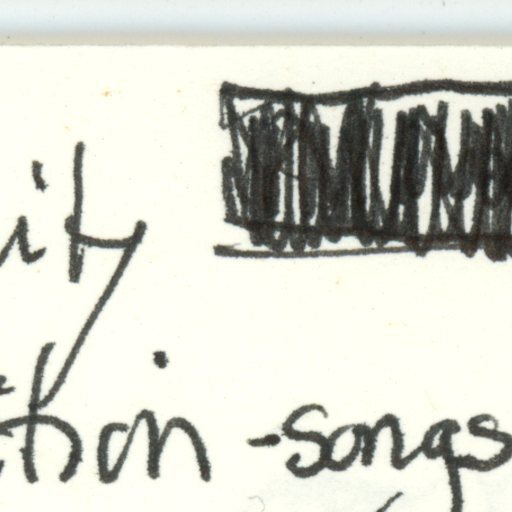 ity
tion -songs